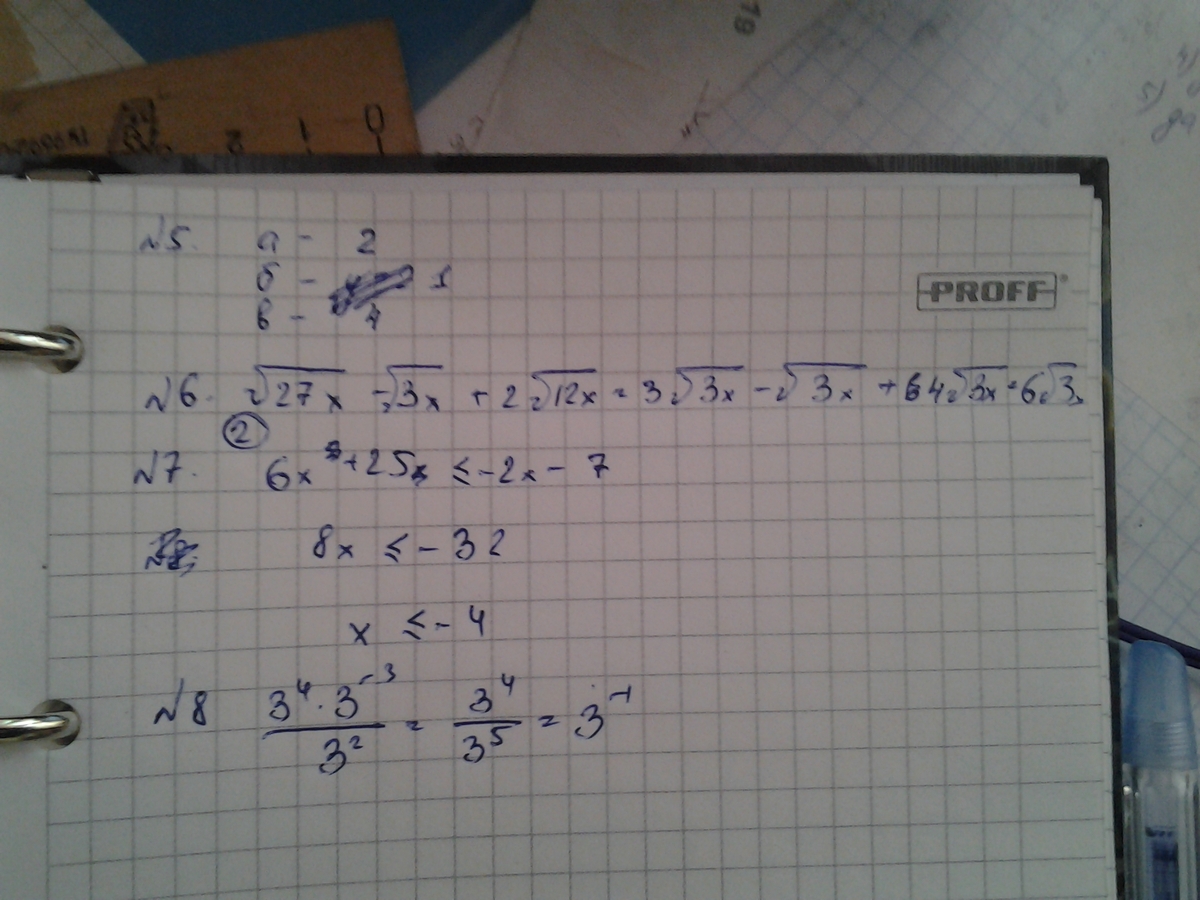 19
2 1 0
4)
5)
№5. а - 2
б - 1
в - 4
PROFF®
№6. √27x - √3x + 2√12x = 3√3x - √3x + 4√3x = 6√3x
②
№7. 6x + 25 ≤ -2x - 7
8x ≤ -32
x ≤ -4
№8 3⁴·3⁻³/3² = 3⁴/3⁵ = 3⁻¹